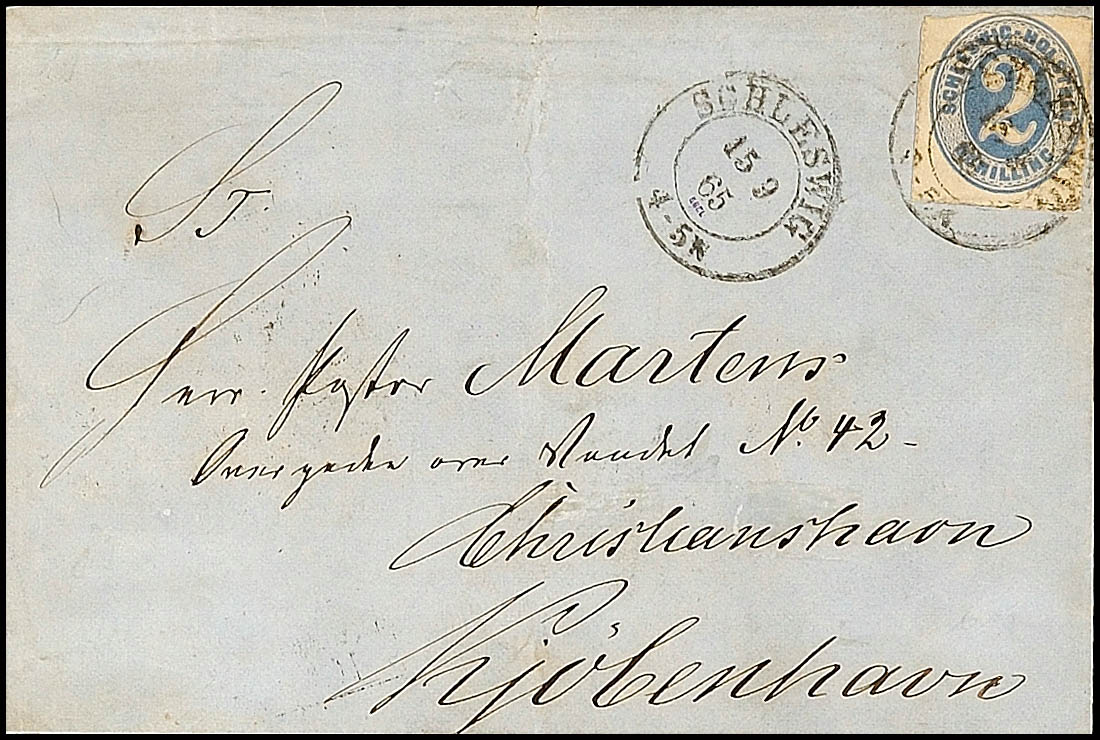 SCHLESWIG-HOLSTEIN
2
SCHILLING
SCHLESWIG
15 9
65
4-5N
Sr.
Herr Pastor Martens
Overgaden over Vandet No. 42-
Christianshavn
Kjöbenhavn